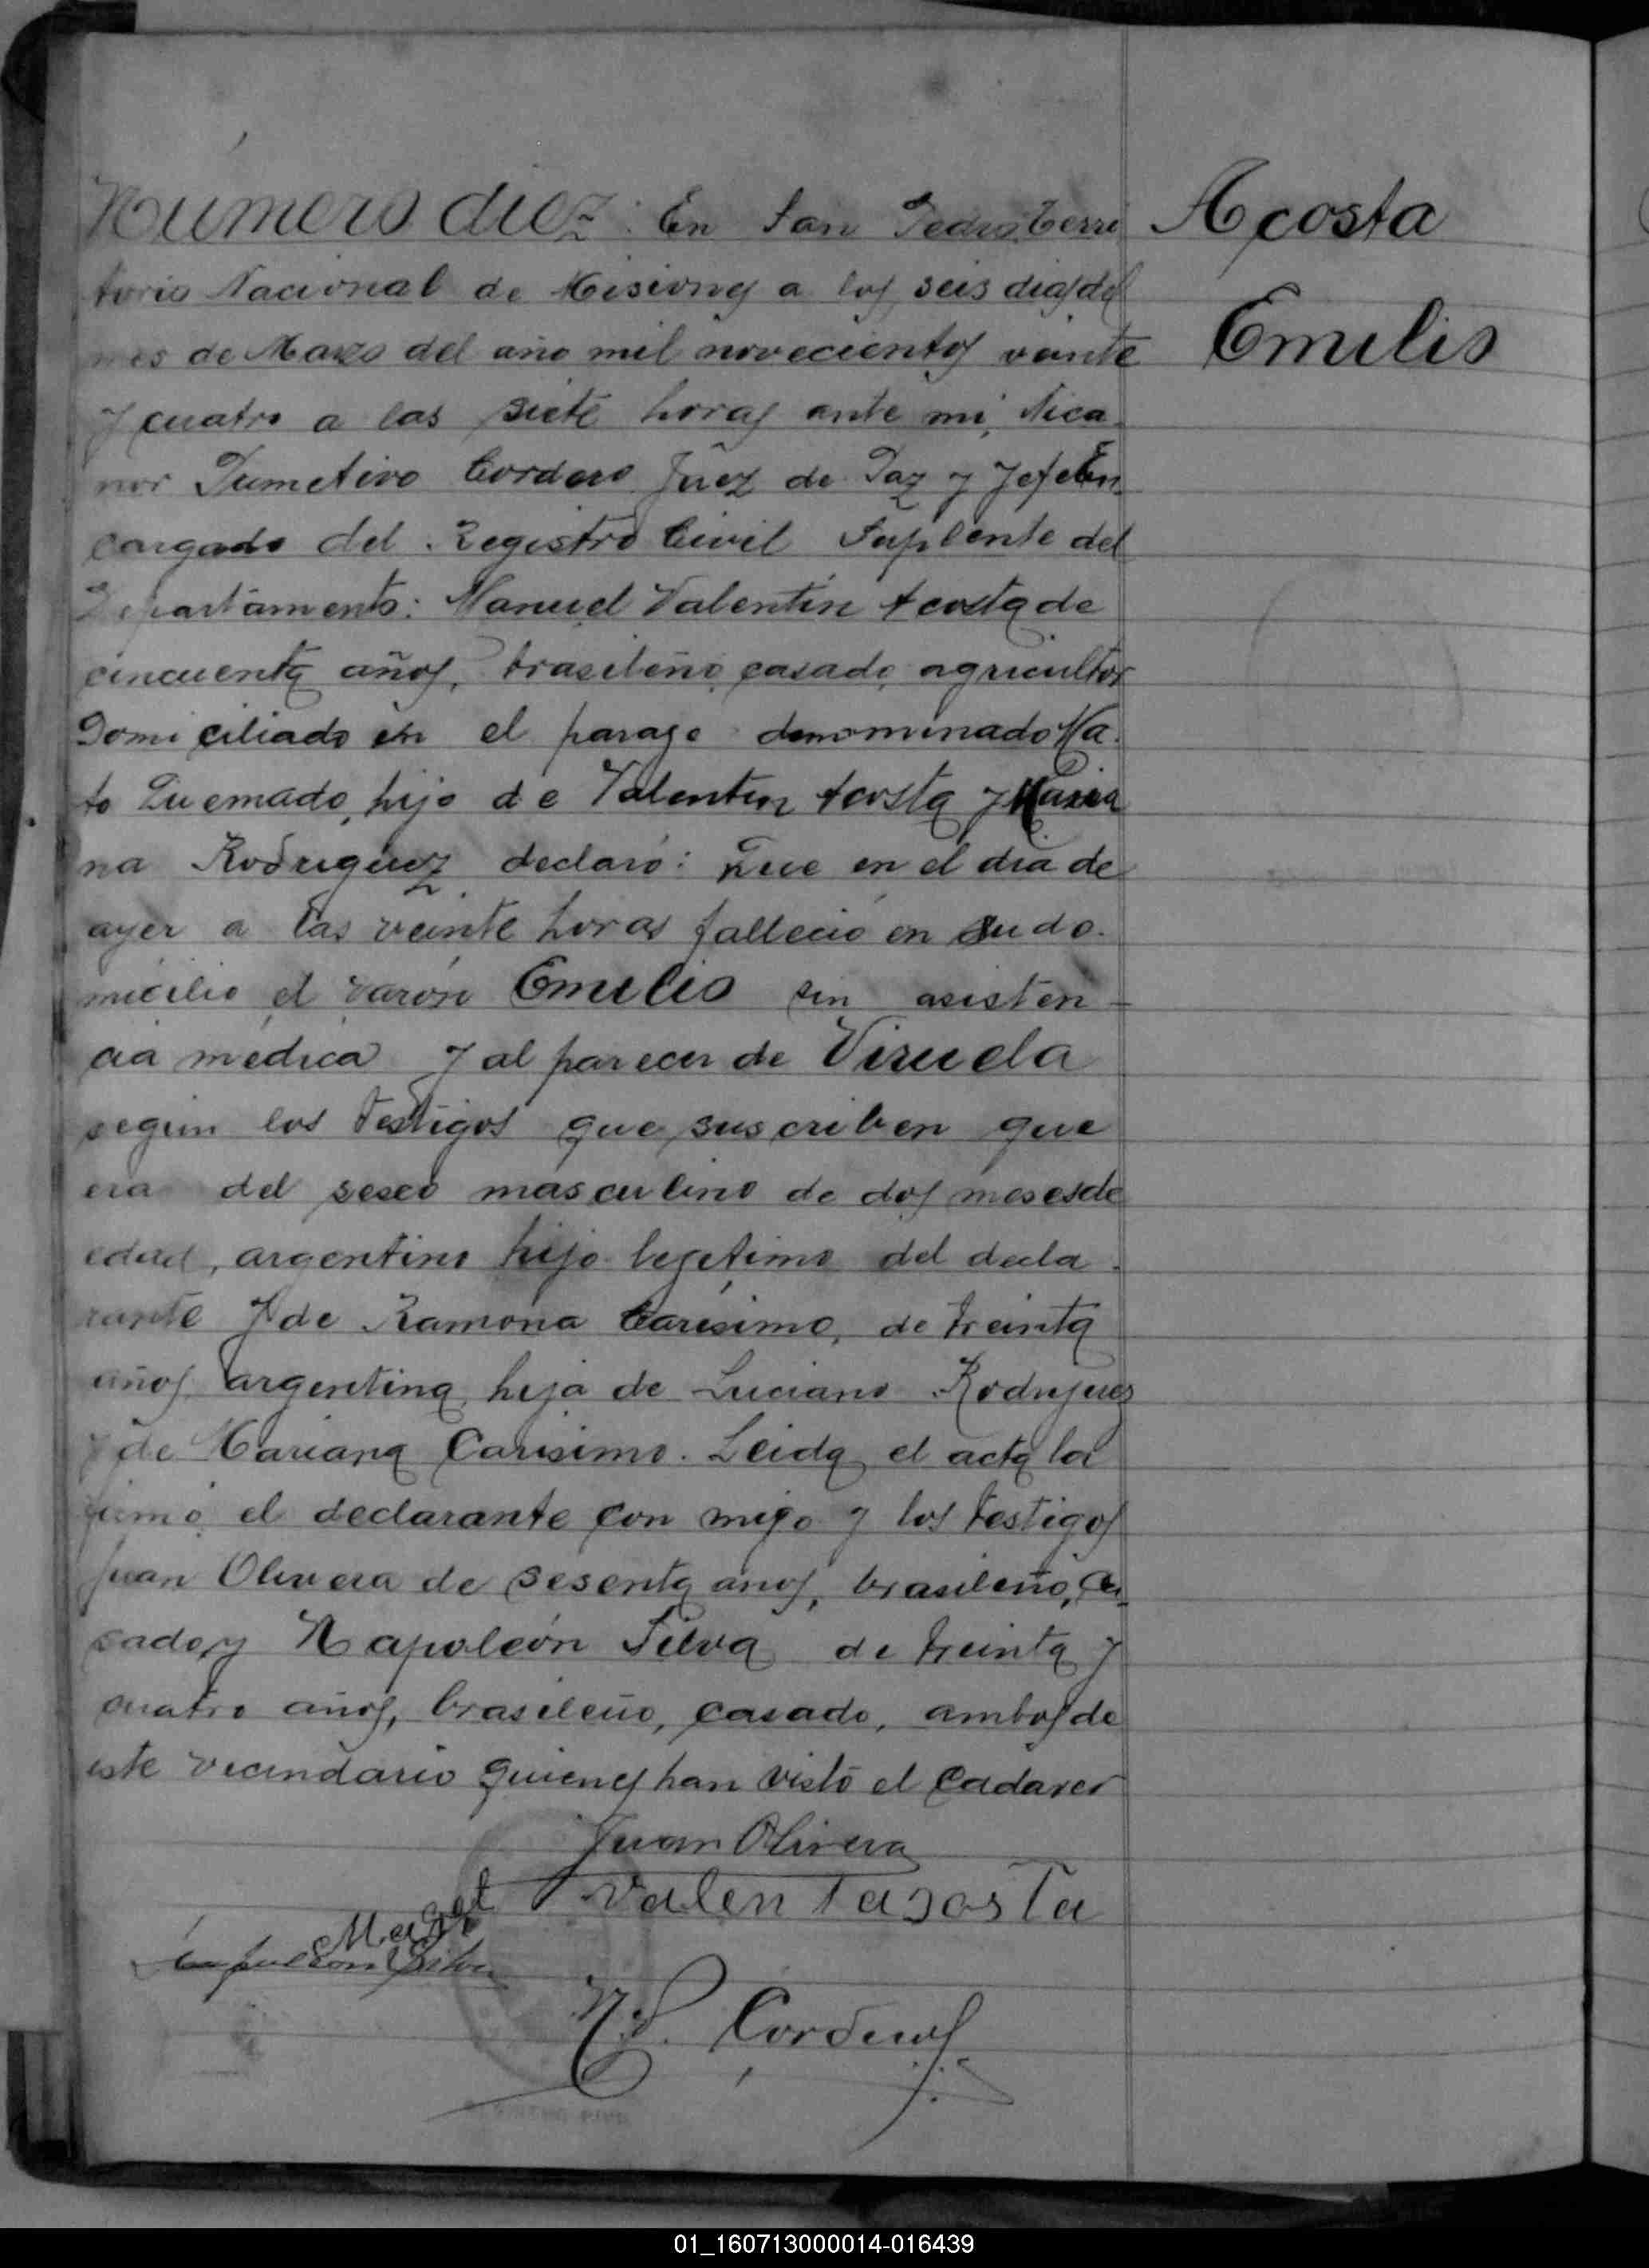 Número diez: En San Pedro, Terri
torio Nacional de Misiones a los seis dias del
mes de Marzo del año mil novecientos veinte
y cuatro a las siete horas ante mi, Nica-
nor Cordero Juez de Paz y Jefe En-
cargado del Registro Civil Suplente del
Departamento: Manuel Valentin Acosta de
cincuenta años, brasileño, casado, agricultor
Domiciliado en el parage denominado Ma-
to Quemado, hijo de Valentin Acosta y Maria
na Rodriguez declaró: Que en el dia de
ayer a las veinte horas falleció en su do-
micilio el varón Emilio sin asisten-
cia médica y al parecer de Viruela
según los testigos que suscriben que
era del sexo masculino de dos meses de
edad, argentino hijo legitimo del decla-
rante y de Ramona Carisimo, de treinta
años, argentina, hija de Luciano Rodriguez
y de Mariana Carisimo. Leida el acta la
firmó el declarante con migo y los testigos
Juan Olivera de sesenta años, brasileño, ca-
sado, y Napoleón Silva de treinta y
cuatro años, brasileño, casado, ambos de
este vecindario quienes han visto el cadaver
Juan Olivera
Valen Tacosta
Napoleon Silva
N. P. Cordero
Acosta
Emilio
01_160713000014-016439